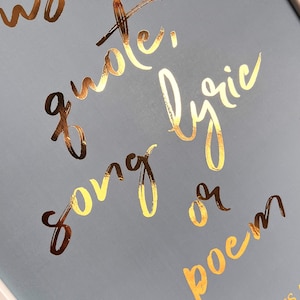 quote,
song lyric
or
poem